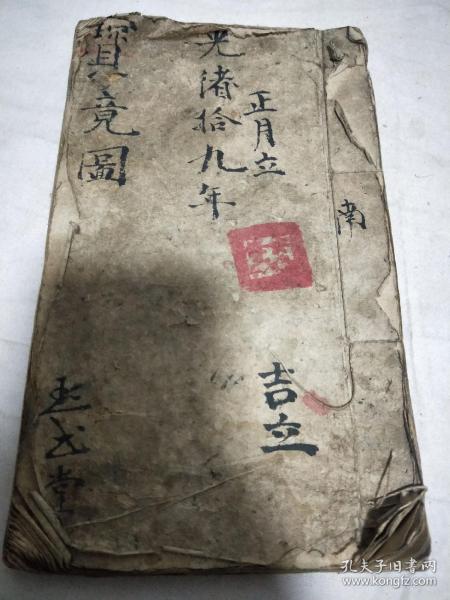 南
光渚拾九年
正月立
吉立
寳竟圖
堂
孔夫子旧书网
www.kongfz.com